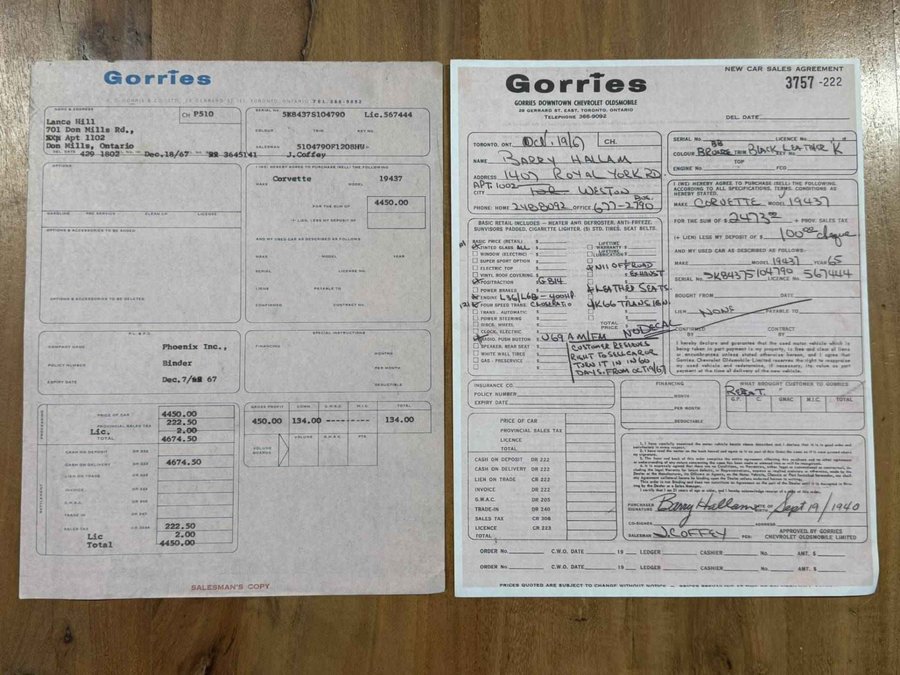 Gorries
28 GERRARD ST. EAST, TORONTO, ONTARIO TEL. 366-9092
NAME & ADDRESS
CH P510
Lance Hill
701 Don Mills Rd.,
Apt 1102
Don Mills, Ontario
DEL. DATE 429 1802 Dec.18/67 3645141
SERIAL No.
5K8437S104790
Lic.567444
COLOUR TRIM KEY No.
SALESMAN
5104790F1208HU-
J.Coffey
OPTIONS
I (WE) HEREBY AGREE TO PURCHASE (SELL) THE FOLLOWING
MAKE Corvette MODEL 19437
FOR THE SUM OF 4450.00
(+ LIEN) LESS MY DEPOSIT OF
HARDLING PRE SERVICE CLEAN UP LICENSE
OPTIONS & ACCESSORIES TO BE ADDED
AND MY USED CAR AS DESCRIBED AS FOLLOWS
MAKE MODEL YEAR
SERIAL LICENSE No.
LIENS PAYABLE TO
OPTIONS & ACCESSORIES TO BE DELETED
CONFIRMED CONTRACT No.
P.L. & P.D.
COMPANY NAME Phoenix Inc.,
POLICY NUMBER Binder
EXPIRY DATE Dec.7/ 67
SPECIAL INSTRUCTIONS
FINANCING
MONTHS
PER MONTH
DEDUCTIBLE
PRICE OF CAR 4450.00
PROVINCIAL SALES TAX 222.50
Lic. 2.00
TOTAL 4674.50
CASH ON DEPOSIT DR 222
CASH ON DELIVERY DR 222 4674.50
LIEN ON TRADE CR 222
INVOICE DR 222
G.M.A.C. DR 205
TRADE-IN DR 240
SALES TAX CR 222.50
Lic 2.00
Total 4450.00
GROSS PROFIT COMM. G.M.A.C. M.I.C. TOTAL
450.00 134.00 --------- 134.00
VOLUME BOARDS
VOLUME G.M.A.C. PTS.
SALESMAN'S COPY
NEW CAR SALES AGREEMENT
Gorries
3757-222
GORRIES DOWNTOWN CHEVROLET OLDSMOBILE
28 GERRARD ST. EAST, TORONTO, ONTARIO
TELEPHONE 366-9092
DEL. DATE
TORONTO, ONT. Oct. 19/67 CH.
NAME BARRY HALLAM
ADDRESS 1407 ROYAL YORK RD
APT. 1002
CITY TOR WESTON
PHONE: HOME 2488092 OFFICE BUS. 677-2790
SERIAL No. LICENCE No.
COLOUR BB BRONZE TRIM BLACK LEATHER K
TOP
ENGINE No. FCO
I (WE) HEREBY AGREE TO PURCHASE (SELL) THE FOLLOWING.
ACCORDING TO ALL SPECIFICATIONS, TERMS, CONDITIONS AS
HEREBY STATED.
MAKE CORVETTE MODEL 19437
FOR THE SUM OF $ 2473.00 + PROV. SALES TAX
(+ LIEN) LESS MY DEPOSIT OF $ 100.00 cheque
AND MY USED CAR AS DESCRIBED AS FOLLOWS:
MAKE MODEL 19437 YEAR 65
SERIAL No. 5K8437S104790 567444
BOUGHT FROM DATE
LIEN NONE PAYABLE TO
CONFIRMED BY CONTRACT BY
BASIC RETAIL INCLUDES – HEATER AND DEFROSTER. ANTI-FREEZE.
SUNVISORS PADDED. CIGARETTE LIGHTER. (5) STD. TIRES. SEAT BELTS.
BASIC PRICE (RETAIL) $
TINTED GLASS ALL $
WINDOW (ELECTRIC) $
SUPER SPORT OPTION $
ELECTRIC TOP $
VINYL ROOF COVERING $
POSITRACTION G814
POWER BRAKES $
ENGINE L36/L68-400HP
FOUR SPEED TRANS. CLOSE RATIO
TRANS. AUTOMATIC $
POWER STEERING $
DISCS, WHEEL $
CLOCK, ELECTRIC $
RADIO, PUSH BUTTON U69 AM/FM NO DECAL
SPEAKER, REAR SEAT $
WHITE WALL TIRES $
GAS - PRESERVICE $
LIFETIME WARRANTY
LIFETIME LUBRICATION
N11 OFF ROAD
EXHAUST
LEATHER SEATS
K66 TRANS IGN.
TOTAL PRICE $
CUSTOMER RESERVES
RIGHT TO SELL CAR OR
TURN IT IN IN 60
DAYS, FROM OCT 19/67
I hereby declare and guarantee that the used motor vehicle which is
being taken in part payment is my property, is free and clear of all liens
or encumbrances unless stated otherwise hereon, and I agree that
Gorries Chevrolet Oldsmobile Limited reserves the right to reappraise
my used vehicle and redetermine, if necessary, its value as part
payment at time of delivery of the above new vehicle.
INSURANCE CO.
POLICY NUMBER
EXPIRY DATE
FINANCING
MONTH
PER MONTH
DEDUCTIBLE
WHAT BROUGHT CUSTOMER TO GORRIES
REPEAT.
G.P. C. GMAC M.I.C. TOTAL
PRICE OF CAR
PROVINCIAL SALES TAX
LICENCE
TOTAL
CASH ON DEPOSIT DR 222
CASH ON DELIVERY DR 222
LIEN ON TRADE CR 222
INVOICE CR 222
G.M.A.C. DR 205
TRADE-IN DR 240
SALES TAX CR 306
LICENCE CR 223
TOTAL
PURCHASER SIGNATURE Barry Hallam DATE OF BIRTH Sept 19/1940
CO-SIGNER ADDRESS
SALESMAN J. COFFEY PER:
APPROVED BY GORRIES
CHEVROLET OLDSMOBILE LIMITED
ORDER No. C.W.O. DATE 19 LEDGER CASHIER No. AMT. $
ORDER No. C.W.O. DATE 19 LEDGER CASHIER No. AMT. $
PRICES QUOTED ARE SUBJECT TO CHANGE WITHOUT NOTICE